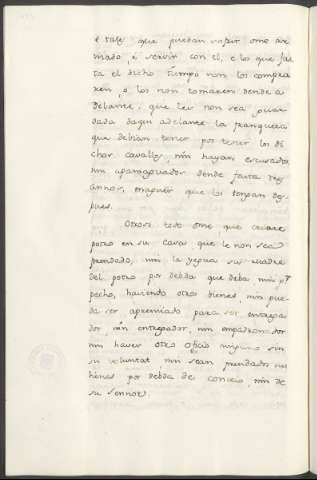 é tales que puedan sofrir ome ar
mado, é servir con él, e los que fas
ta el dicho tiempo non los compra
ren, o los non tomaren dende a
delante, que les non sea guar
dada dagui adelante la franqueza
que debian tener por tener los di
chos cavallos, nin hayan escusados
nin apaniguados dende fasta tres
annos, maguer que los tengan des
pues.
Otrosi todo ome que criare
potro en su casa que le non sea
prendado, nin la yegua su madre
del potro por debda que deba nin pr
pecho, haviendo otros bienes, nin pue
da ser apremiado para ser entrega
dor nin entregador, nin empadronador
nin haver otro oficio ninguno sin
su voluntat nin sean prendados sus
bienes por debda de concejo, nin de
su sennor.